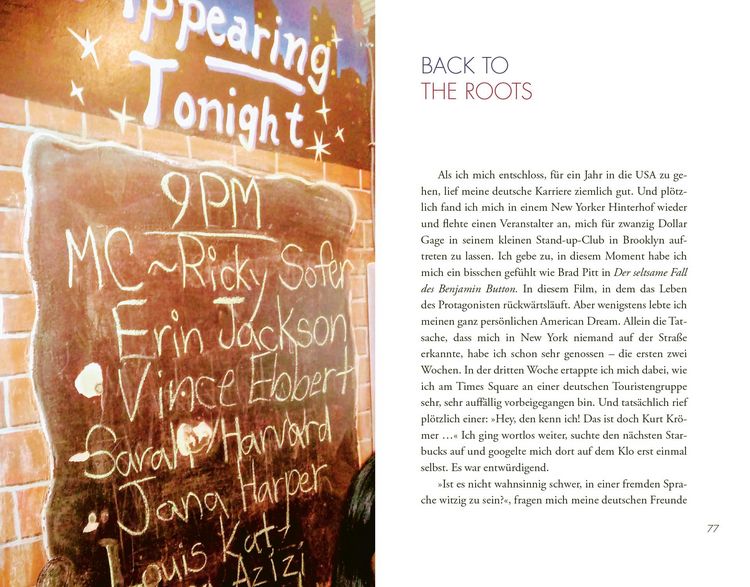 Appearing
Tonight
9 PM
MC ~ Ricky Sofer
Erin Jackson
Vince Ebbert
Sarah Harvard
Jana Harper
Louis Katz
Azizi
BACK TO
THE ROOTS
Als ich mich entschloss, für ein Jahr in die USA zu ge-
hen, lief meine deutsche Karriere ziemlich gut. Und plötz-
lich fand ich mich in einem New Yorker Hinterhof wieder
und flehte einen Veranstalter an, mich für zwanzig Dollar
Gage in seinem kleinen Stand-up-Club in Brooklyn auf-
treten zu lassen. Ich gebe zu, in diesem Moment habe ich
mich ein bisschen gefühlt wie Brad Pitt in Der seltsame Fall
des Benjamin Button. In diesem Film, in dem das Leben
des Protagonisten rückwärtsläuft. Aber wenigstens lebte ich
meinen ganz persönlichen American Dream. Allein die Tat-
sache, dass mich in New York niemand auf der Straße
erkannte, habe ich schon sehr genossen – die ersten zwei
Wochen. In der dritten Woche ertappte ich mich dabei, wie
ich am Times Square an einer deutschen Touristengruppe
sehr, sehr auffällig vorbeigegangen bin. Und tatsächlich rief
plötzlich einer: »Hey, den kenn ich! Das ist doch Kurt Krö-
mer …« Ich ging wortlos weiter, suchte den nächsten Star-
bucks auf und googelte mich dort auf dem Klo erst einmal
selbst. Es war entwürdigend.
»Ist es nicht wahnsinnig schwer, in einer fremden Spra-
che witzig zu sein?«, fragen mich meine deutschen Freunde
77